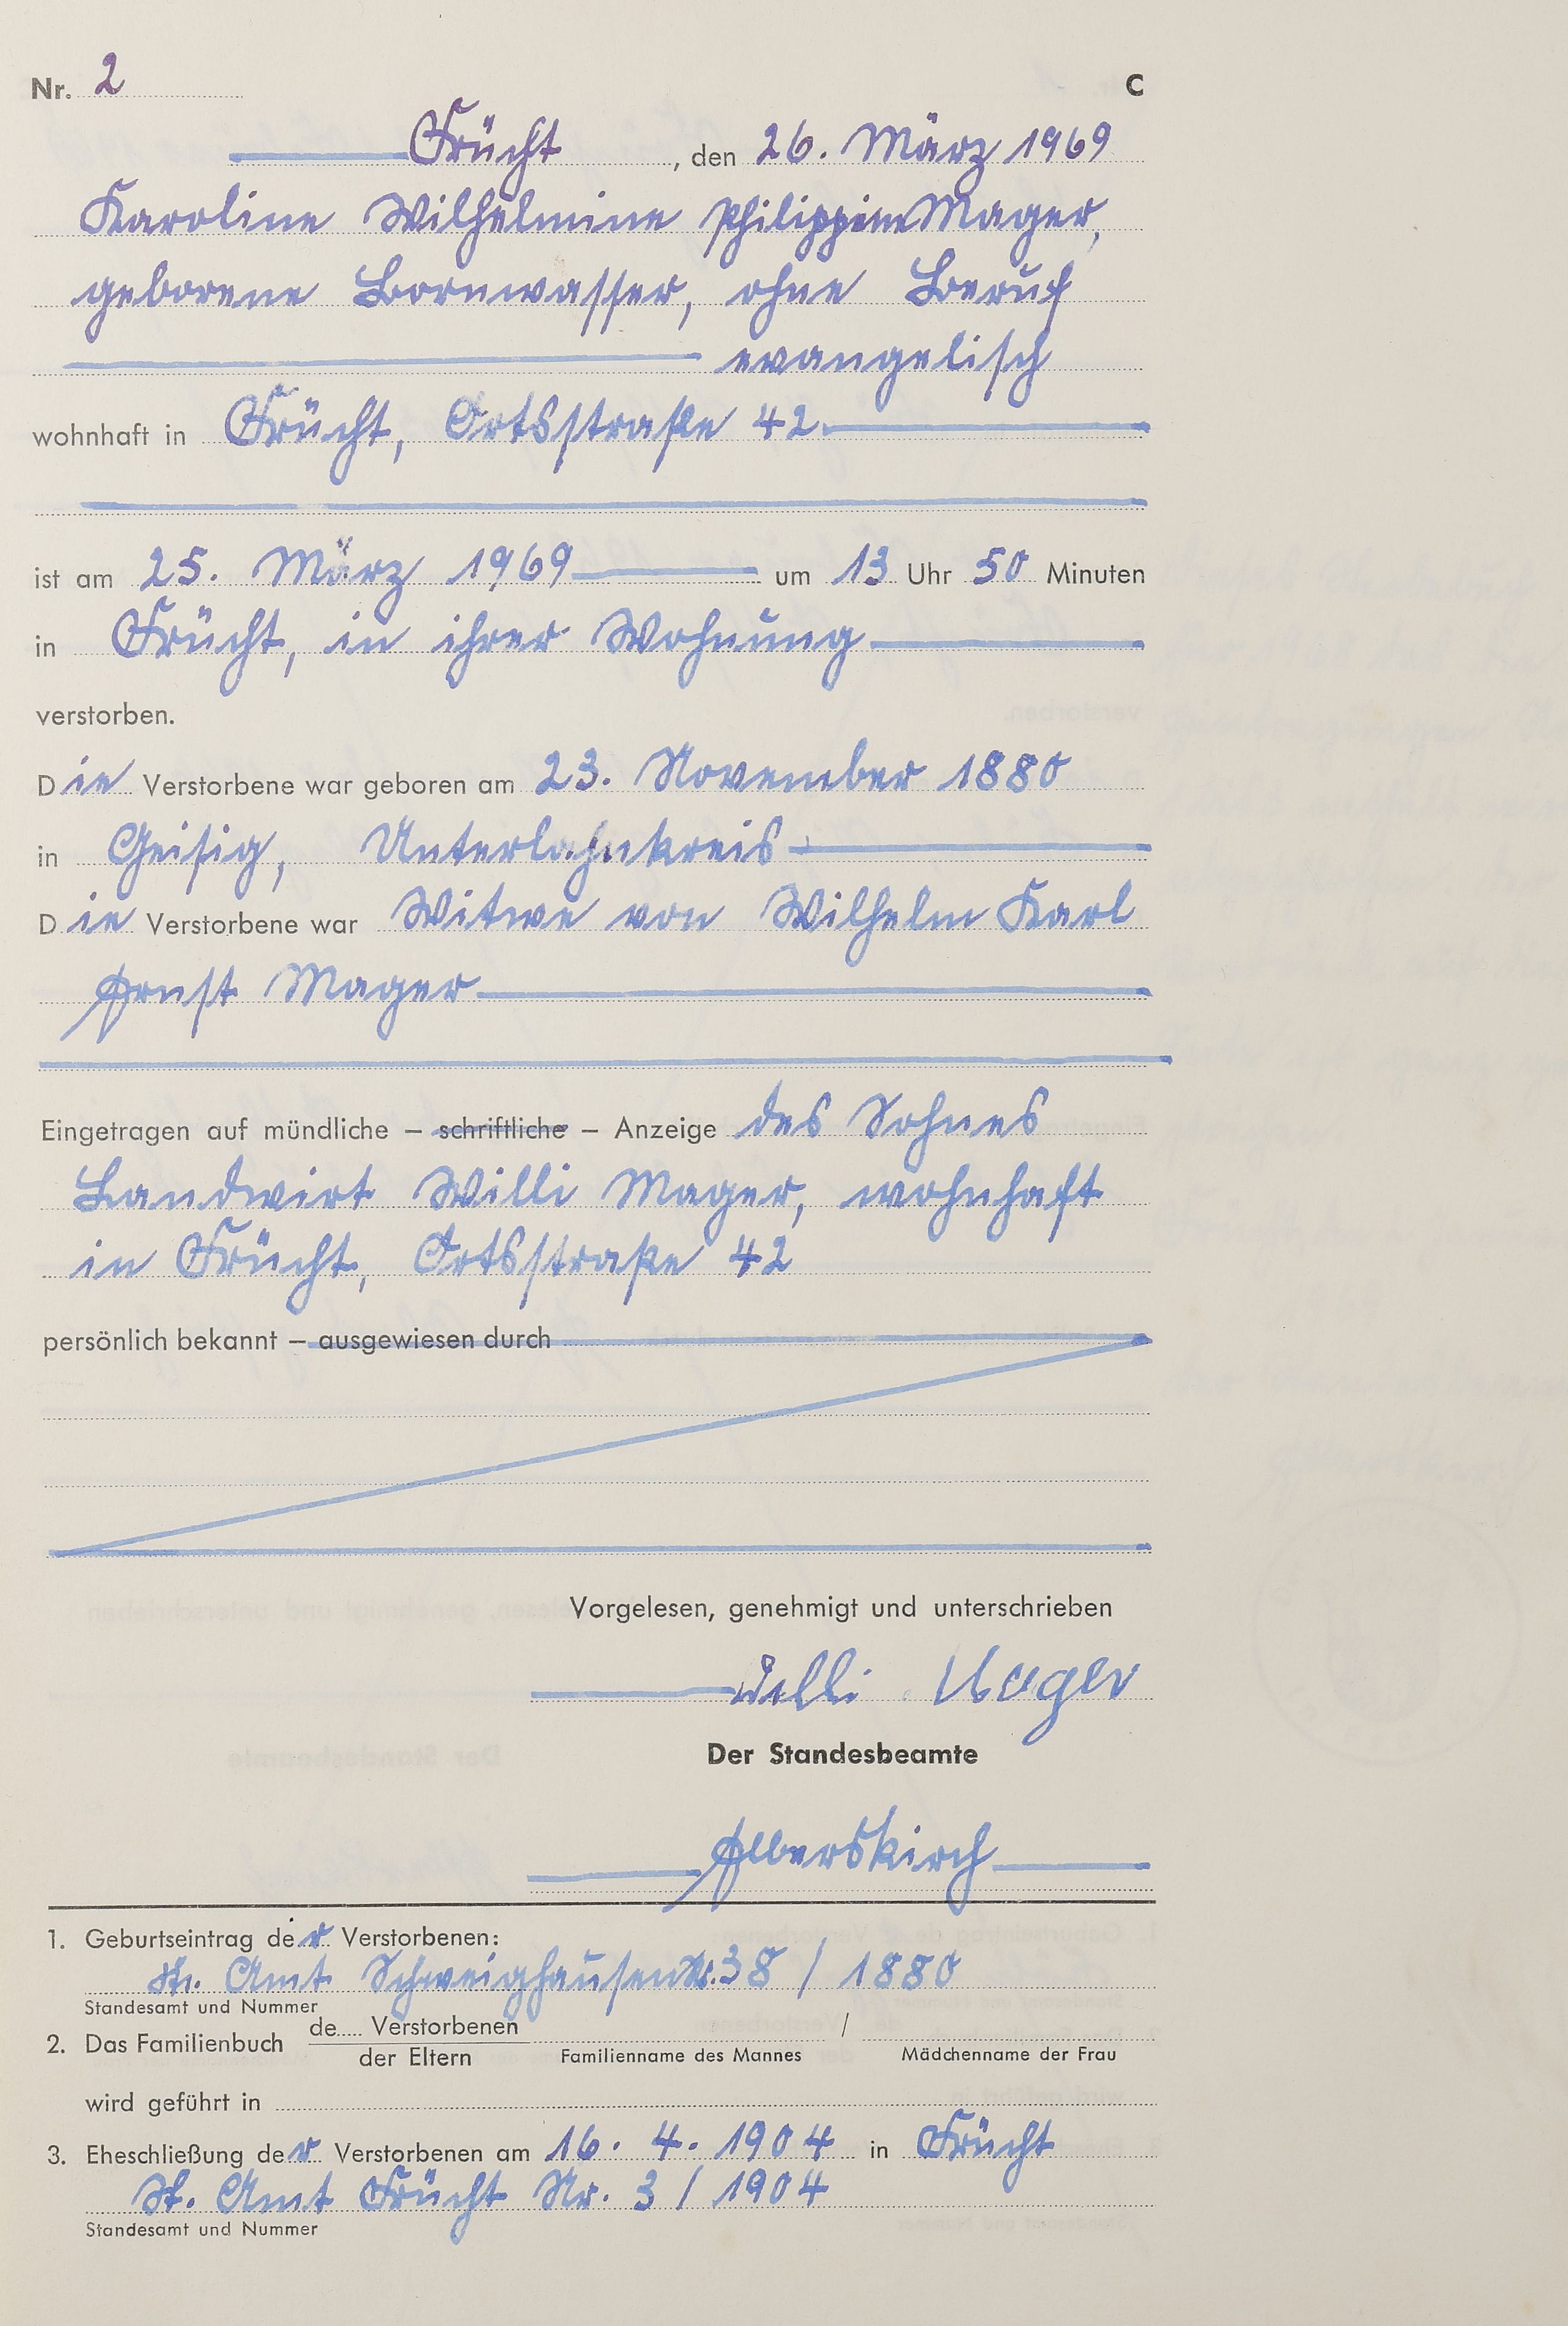 Nr. 2 C
Frücht, den 26. März 1969
Karoline Wilhelmine Philippine Mager,
geborene Bornwasser, ohne Beruf
evangelisch
wohnhaft in Frücht, Ortsstraße 42
ist am 25. März 1969 um 13 Uhr 50 Minuten
in Frücht, in ihrer Wohnung
verstorben.
Die Verstorbene war geboren am 23. November 1880
in Geisig, Unterlahnkreis
Die Verstorbene war Witwe von Wilhelm Karl
Ernst Mager
Eingetragen auf mündliche – schriftliche – Anzeige des Sohnes
Landwirt Willi Mager, wohnhaft
in Frücht, Ortsstraße 42
persönlich bekannt – ausgewiesen durch
Vorgelesen, genehmigt und unterschrieben
Willi Mager
Der Standesbeamte
1. Geburtseintrag der Verstorbenen:
St. Amt Schweighausen Nr. 38 / 1880
Standesamt und Nummer
2. Das Familienbuch de..... Verstorbenen /
der Eltern Familienname des Mannes Mädchenname der Frau
wird geführt in
3. Eheschließung der Verstorbenen am 16. 4. 1904 in Frücht
St. Amt Frücht Nr. 3 / 1904
Standesamt und Nummer